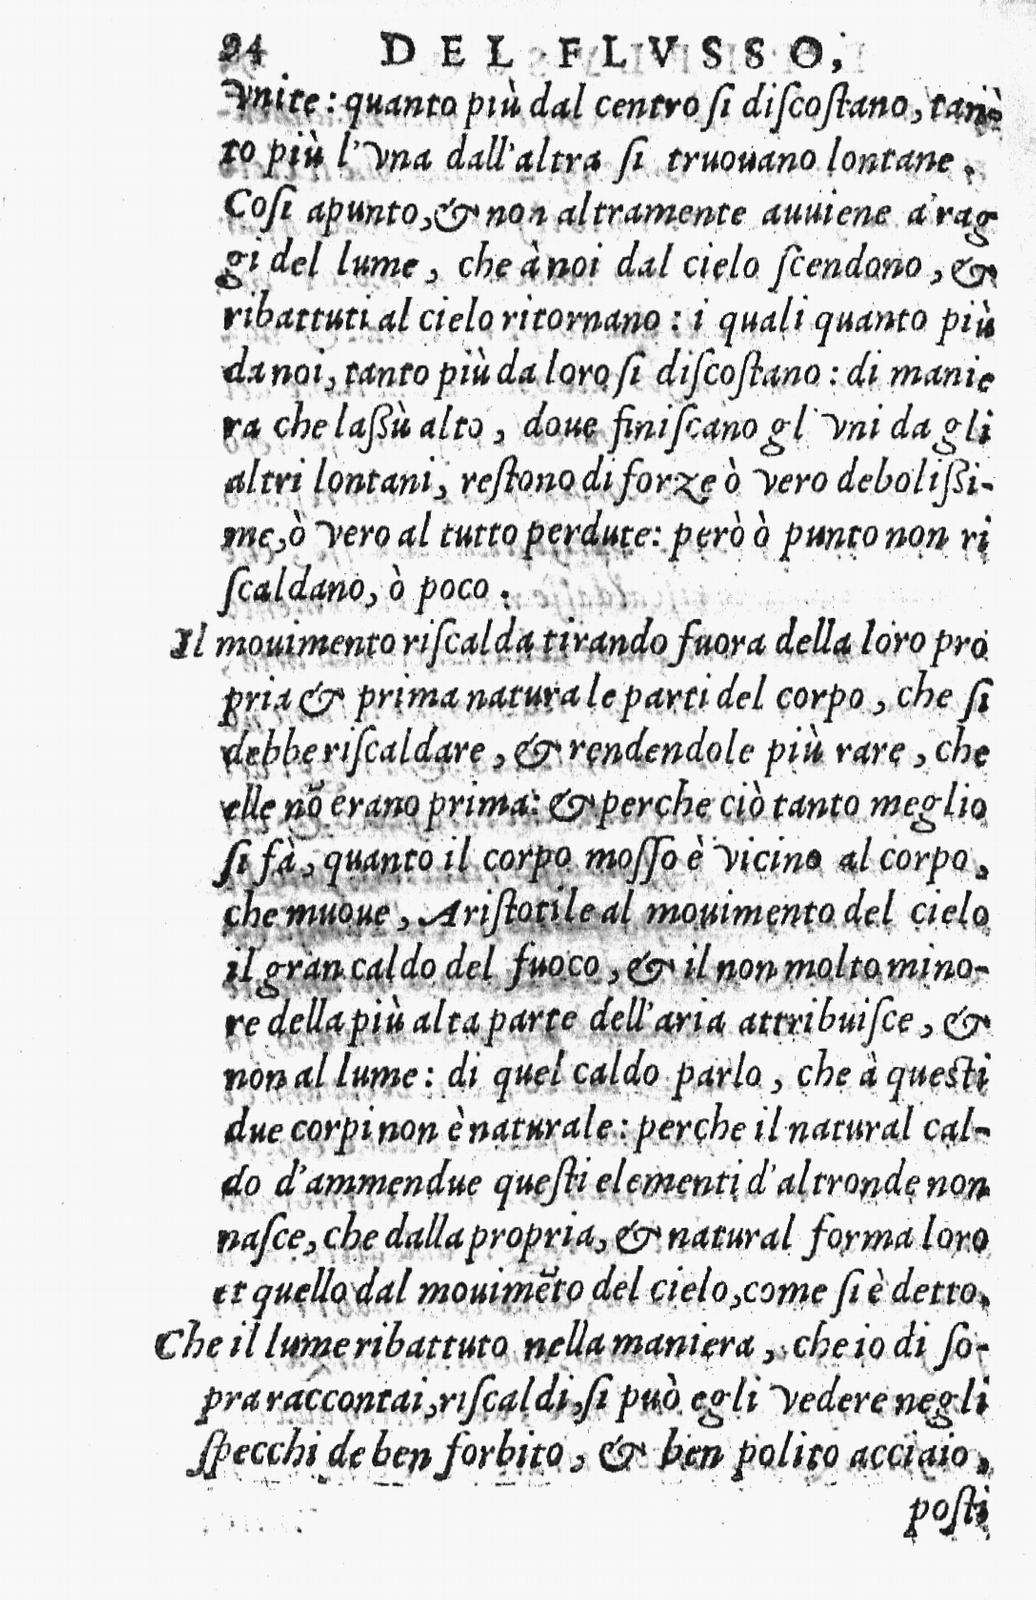 94 DEL FLVSSO,
vnite: quanto più dal centro ſi diſcoſtano, tan-
to più l'vna dall'altra ſi truouano lontane.
Coſi apunto, & non altramente auuiene a' rag
gi del lume, che à noi dal cielo ſcendono, &
ribattuti al cielo ritornano: i quali quanto più
da noi, tanto più da loro ſi diſcoſtano: di manie
ra che laßù alto, doue finiſcano gl'vni da gli
altri lontani, reſtono di forze ò vero debolißi-
me, ò vero al tutto perdute: però ò punto non ri
ſcaldano, ò poco.
Il mouimento riſcalda tirando fuora della loro pro
pria & prima natura le parti del corpo, che ſi
debbe riſcaldare, & rendendole più rare, che
elle nõ erano prima: & perche ciò tanto meglio
ſi fà, quanto il corpo moſſo è vicino al corpo,
che muoue, Ariſtotile al mouimento del cielo
il gran caldo del fuoco, & il non molto mino-
re della più alta parte dell'aria attribuiſce, &
non al lume: di quel caldo parlo, che à queſti
due corpi non è naturale: perche il natural cal-
do d'ammendue queſti elementi d'altronde non
naſce, che dalla propria, & natural forma loro
et quello dal mouimẽto del cielo, come ſi è detto.
Che il lume ribattuto nella maniera, che io di ſo-
pra raccontai, riſcaldi, ſi può egli vedere negli
ſpecchi de ben forbito, & ben polito acciaio,
poſti